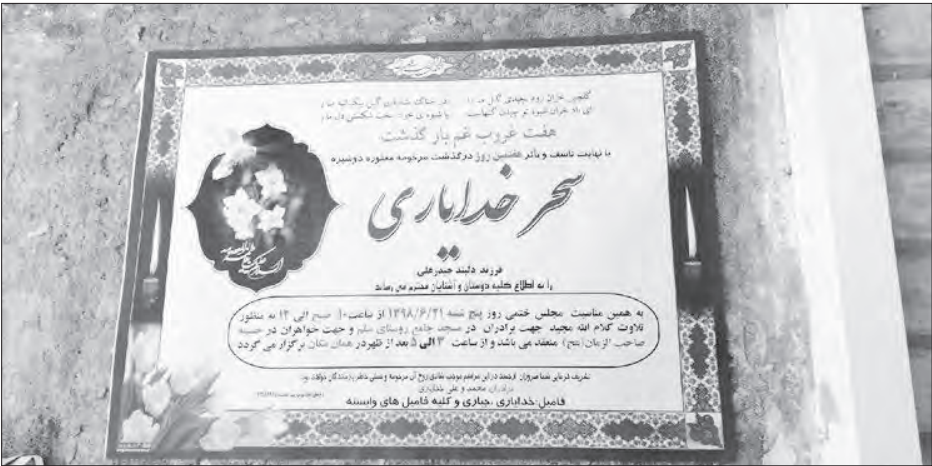 گلچین خزان زود بچیدی گل ما را در خاک گل ما را
ای باد خزان شیوه تو چیدن گلهاست با شیوه ی خود سخت شکستی دل ما را
هفت غروب غم بار گذشت
با نهایت تاسف و تاثر هفتمین روز درگذشت مرحومه مغفوره دوشیزه
سحر خدایاری
فرزند دلبند حیدرعلی
را به اطلاع کلیه دوستان و آشنایان محترم می رساند
به همین مناسبت مجلس ختمی روز پنج شنبه ۱۳۹۸/۶/۲۱ از ساعت ۱۰ صبح الی ۱۲ به منظور
تلاوت کلام الله مجید جهت برادران در مسجد جامع روستای سلم و جهت خواهران در حسینیه
صاحب الزمان(عج) منعقد می باشد و از ساعت ۳ الی ۵ بعد از ظهر در همان مکان برگزار می گردد
تشریف فرمایی شما سروران ارجمند در این مراسم موجب شادی روح آن مرحومه و تسلی خاطر بازماندگان خواهد بود
برادران: محمد و علی خدایاری
فامیل: خدایاری، جباری و کلیه فامیل های وابسته